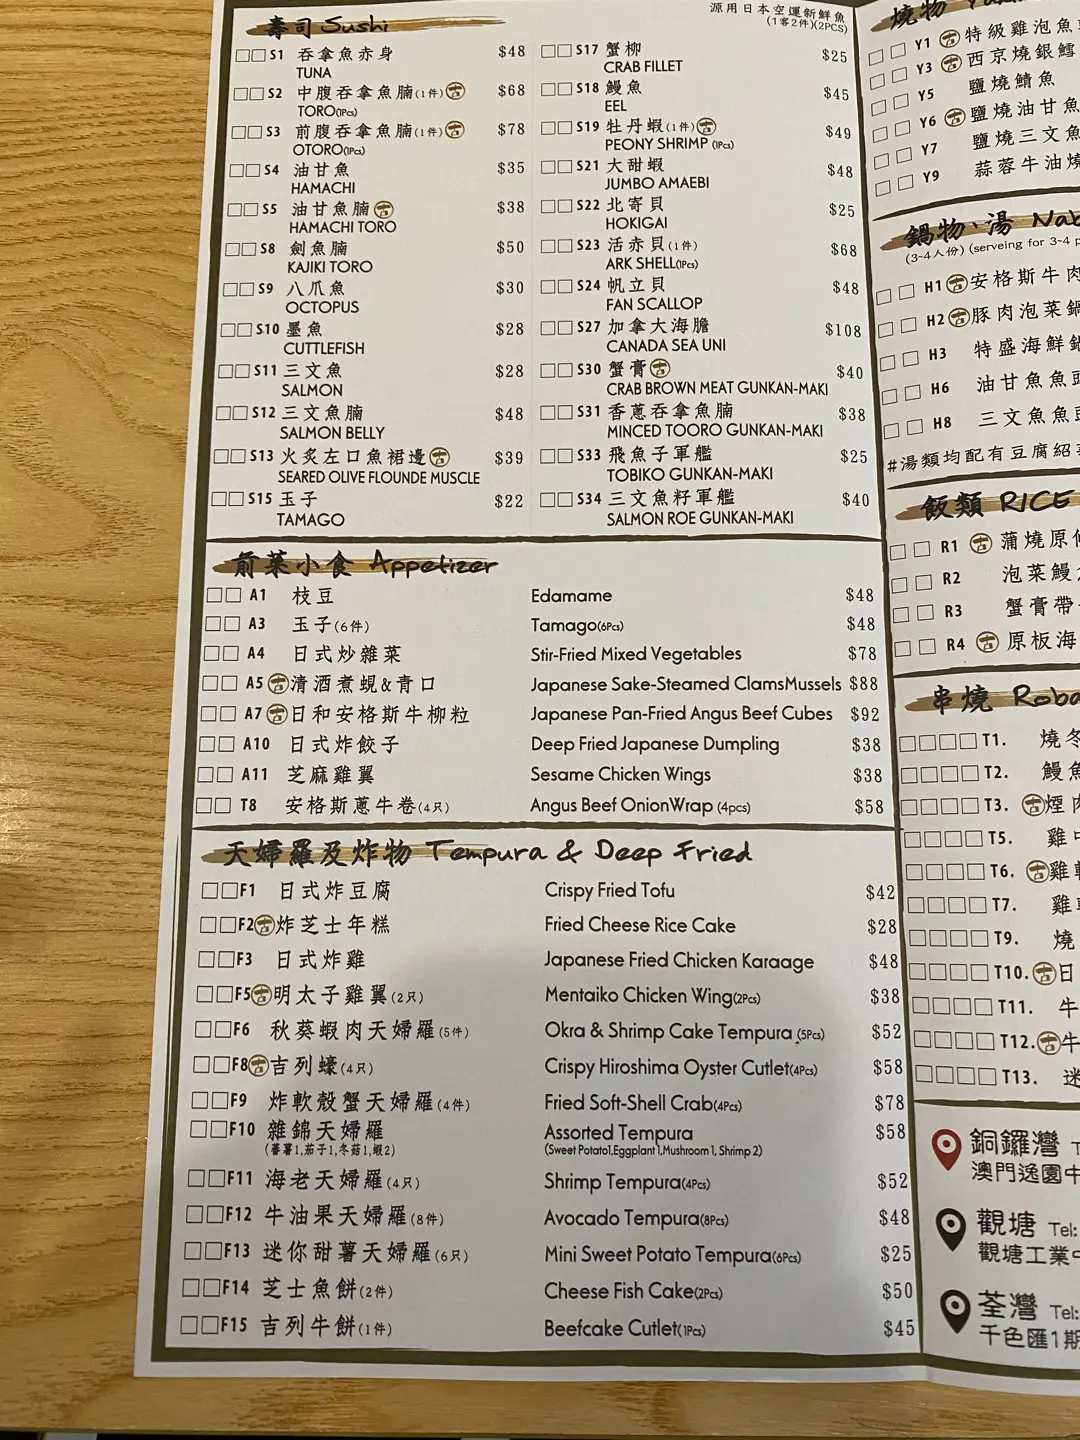 壽司 Sushi
源用日本空運新鮮魚
(1客2件)(2PCS)
S1 吞拿魚赤身 $48
TUNA
S2 中腹吞拿魚腩(1件) 吉 $68
TORO(1Pcs)
S3 前腹吞拿魚腩(1件) 吉 $78
OTORO(1Pcs)
S4 油甘魚 $35
HAMACHI
S5 油甘魚腩 吉 $38
HAMACHI TORO
S8 劍魚腩 $50
KAJIKI TORO
S9 八爪魚 $30
OCTOPUS
S10 墨魚 $28
CUTTLEFISH
S11 三文魚 $28
SALMON
S12 三文魚腩 $48
SALMON BELLY
S13 火炙左口魚裙邊 吉 $39
SEARED OLIVE FLOUNDE MUSCLE
S15 玉子 $22
TAMAGO
S17 蟹柳 $25
CRAB FILLET
S18 鰻魚 $45
EEL
S19 牡丹蝦(1件) 吉 $49
PEONY SHRIMP (1Pcs)
S21 大甜蝦 $48
JUMBO AMAEBI
S22 北寄貝 $25
HOKIGAI
S23 活赤貝(1件) $68
ARK SHELL(1Pcs)
S24 帆立貝 $48
FAN SCALLOP
S27 加拿大海膽 $108
CANADA SEA UNI
S30 蟹膏 吉 $40
CRAB BROWN MEAT GUNKAN-MAKI
S31 香蔥吞拿魚腩 $38
MINCED TOORO GUNKAN-MAKI
S33 飛魚子軍艦 $25
TOBIKO GUNKAN-MAKI
S34 三文魚籽軍艦 $40
SALMON ROE GUNKAN-MAKI
前菜小食 Appetizer
A1 枝豆 Edamame $48
A3 玉子(6件) Tamago(6Pcs) $48
A4 日式炒雜菜 Stir-Fried Mixed Vegetables $78
A5 吉 清酒煮蜆&青口 Japanese Sake-Steamed ClamsMussels $88
A7 吉 日和安格斯牛柳粒 Japanese Pan-Fried Angus Beef Cubes $92
A10 日式炸餃子 Deep Fried Japanese Dumpling $38
A11 芝麻雞翼 Sesame Chicken Wings $38
T8 安格斯蔥牛卷(4只) Angus Beef OnionWrap (4pcs) $58
天婦羅及炸物 Tempura & Deep Fried
F1 日式炸豆腐 Crispy Fried Tofu $42
F2 吉 炸芝士年糕 Fried Cheese Rice Cake $28
F3 日式炸雞 Japanese Fried Chicken Karaage $48
F5 吉 明太子雞翼(2只) Mentaiko Chicken Wing(2Pcs) $38
F6 秋葵蝦肉天婦羅(5件) Okra & Shrimp Cake Tempura (5Pcs) $52
F8 吉 吉列蠔(4只) Crispy Hiroshima Oyster Cutlet(4Pcs) $58
F9 炸軟殼蟹天婦羅(4件) Fried Soft-Shell Crab(4Pcs) $78
F10 雜錦天婦羅 Assorted Tempura $58
(蕃薯1,茄子1,冬菇1,蝦2) (Sweet Potato1,Eggplant 1,Mushroom 1, Shrimp 2)
F11 海老天婦羅(4只) Shrimp Tempura(4Pcs) $52
F12 牛油果天婦羅(8件) Avocado Tempura(8Pcs) $48
F13 迷你甜薯天婦羅(6只) Mini Sweet Potato Tempura(6Pcs) $25
F14 芝士魚餅(2件) Cheese Fish Cake(2Pcs) $50
F15 吉列牛餅(1件) Beefcake Cutlet(1Pcs) $45
燒物
Y1 吉 特級雞泡魚
Y3 吉 西京燒銀鱈
Y5 鹽燒鯖魚
Y6 吉 鹽燒油甘魚
Y7 鹽燒三文魚
Y9 蒜蓉牛油燒
鍋物、湯 Nab
(3-4人份) (serveing for 3-4 p
H1 吉 安格斯牛肉
H2 吉 豚肉泡菜鍋
H3 特盛海鮮鍋
H6 油甘魚魚頭
H8 三文魚魚頭
#湯類均配有豆腐紹
飯類 RICE
R1 吉 蒲燒原條
R2 泡菜鰻
R3 蟹膏帶
R4 吉 原板海
串燒 Roba
T1. 燒冬
T2. 鰻魚
T3. 吉 煙肉
T5. 雞中
T6. 吉 雞
T7. 雞
T9. 燒
T10. 吉 日
T11. 牛
T12. 吉 牛
T13. 迷
銅鑼灣
澳門逸園中
觀塘 Tel:
觀塘工業中
荃灣 Tel:
千色匯1期